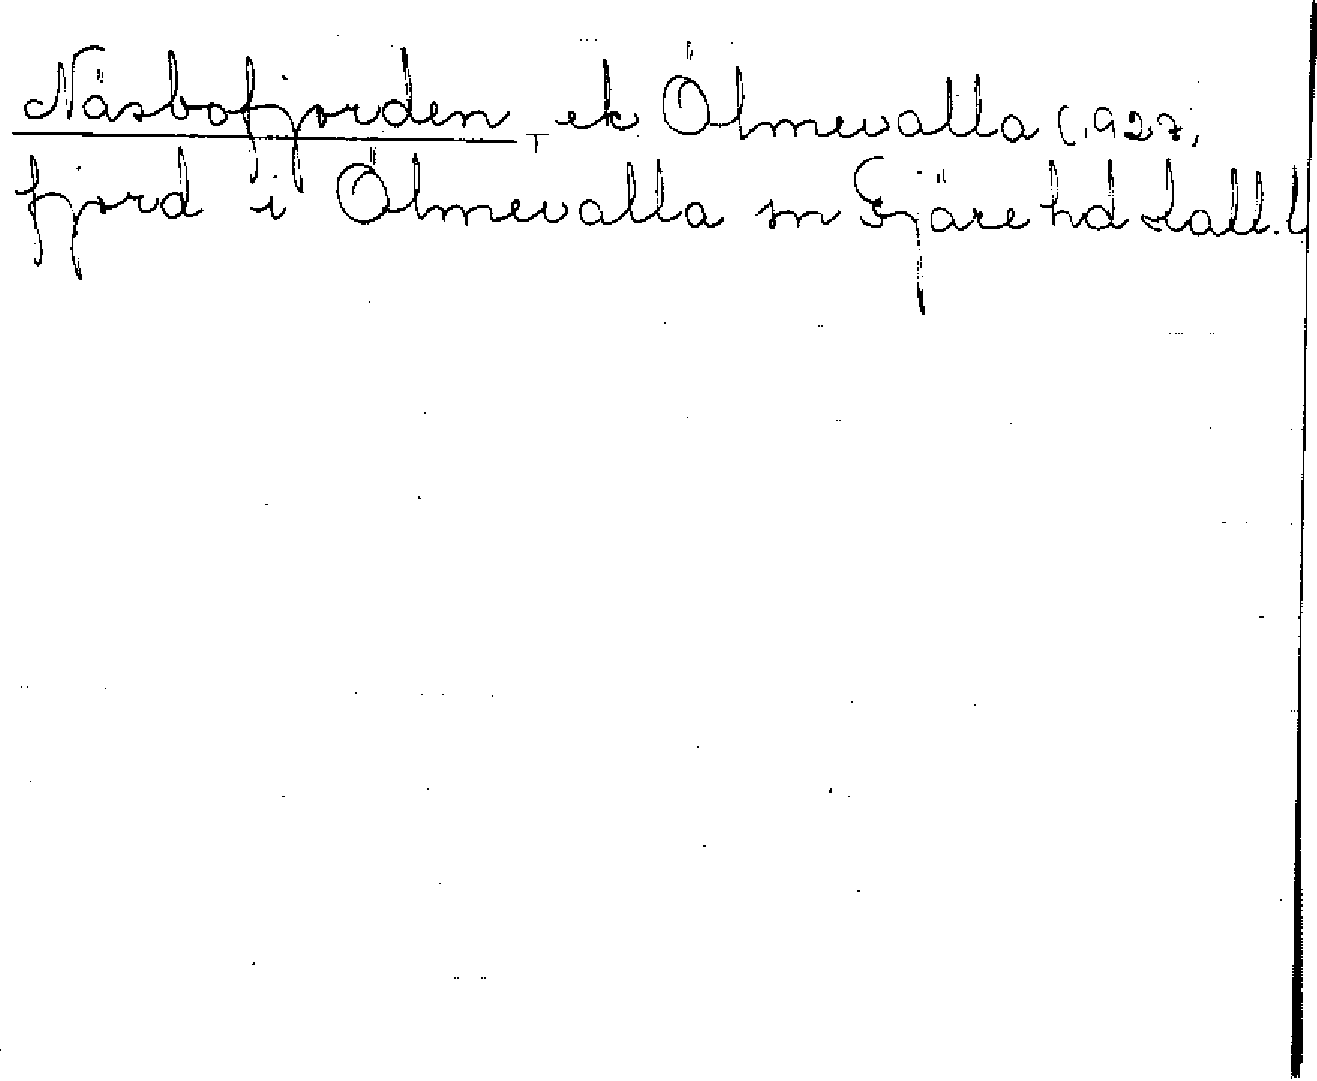 Näsbofjorden ek Ölmevalla (1927,
fjord i Ölmevalla sn Fjäre hd Hall. l